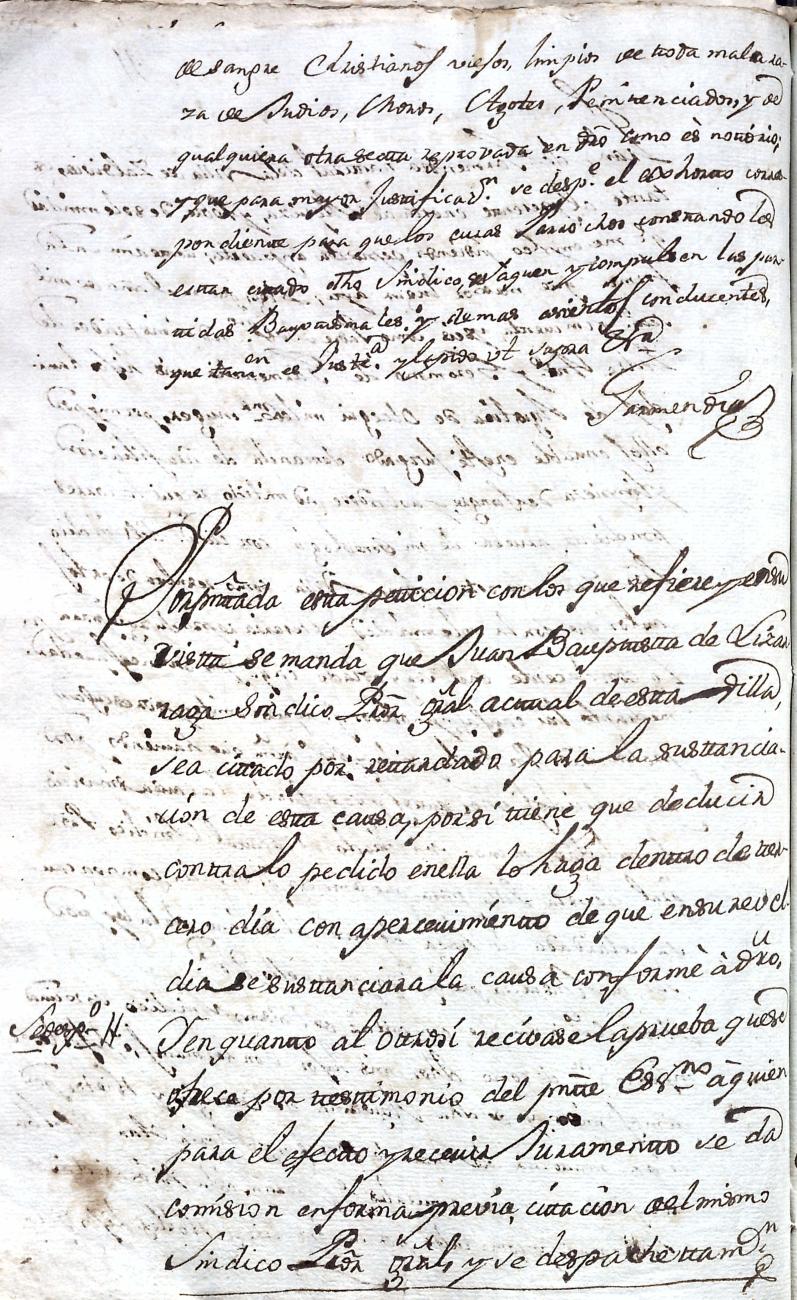 de sangre Christianos viejos, limpios de toda mala ra-
za de Judios, Moros, Agotes, Penitenciados, y de
qualquiera otra secta reprovada en dro como ès notorio;
y que para mayor justificaz.n se desp.e el exhorto corres-
pondiente para que los curas Parrochos constando les
estar citado dho Sindico, saquen y compulsen las par-
tidas Baptismales, y demas asientos conducentes,
que tambien es Just.a y lo pido ut supra &ra
Garmendia
Por presentada esta peticion con los que refiere y en su
vista se manda que Juan Bauptista de Lizar-
raga Sindico Pror gral actual de esta Villa,
sea citado por retardado para la sustancia-
cion de esta causa, por si tiene que deducir
contra lo pedido en ella lo haga dentro de ter-
cero dia con apercevimiento de que en su revel-
dia se sustanciara la causa conformè à dro,
Y en quanto al otrosi recivase la prueba que se
ofrece por testimonio del pnte Essno à quien
para el efecto y recevir Juramento se da
comision en forma previa citacion del mismo
Sindico Pror gral, y se despache tam.n